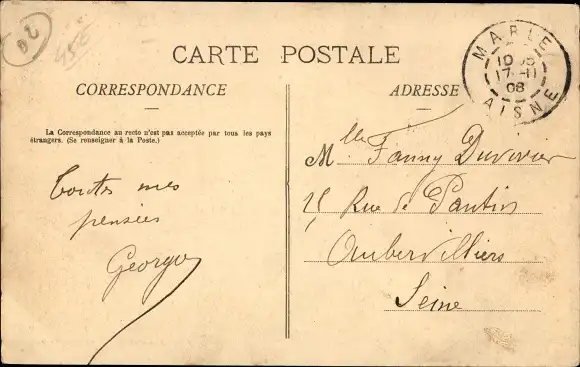 02
CARTE POSTALE
CORRESPONDANCE
La Correspondance au recto n'est pas acceptée par tous les pays
étrangers. (Se renseigner à la Poste.)
Toutes mes
pensées
Georges
MARLE
17-11
08
AISNE
ADRESSE
Mlle Fanny Duvivier
Rue de Pantin
Aubervilliers
Seine